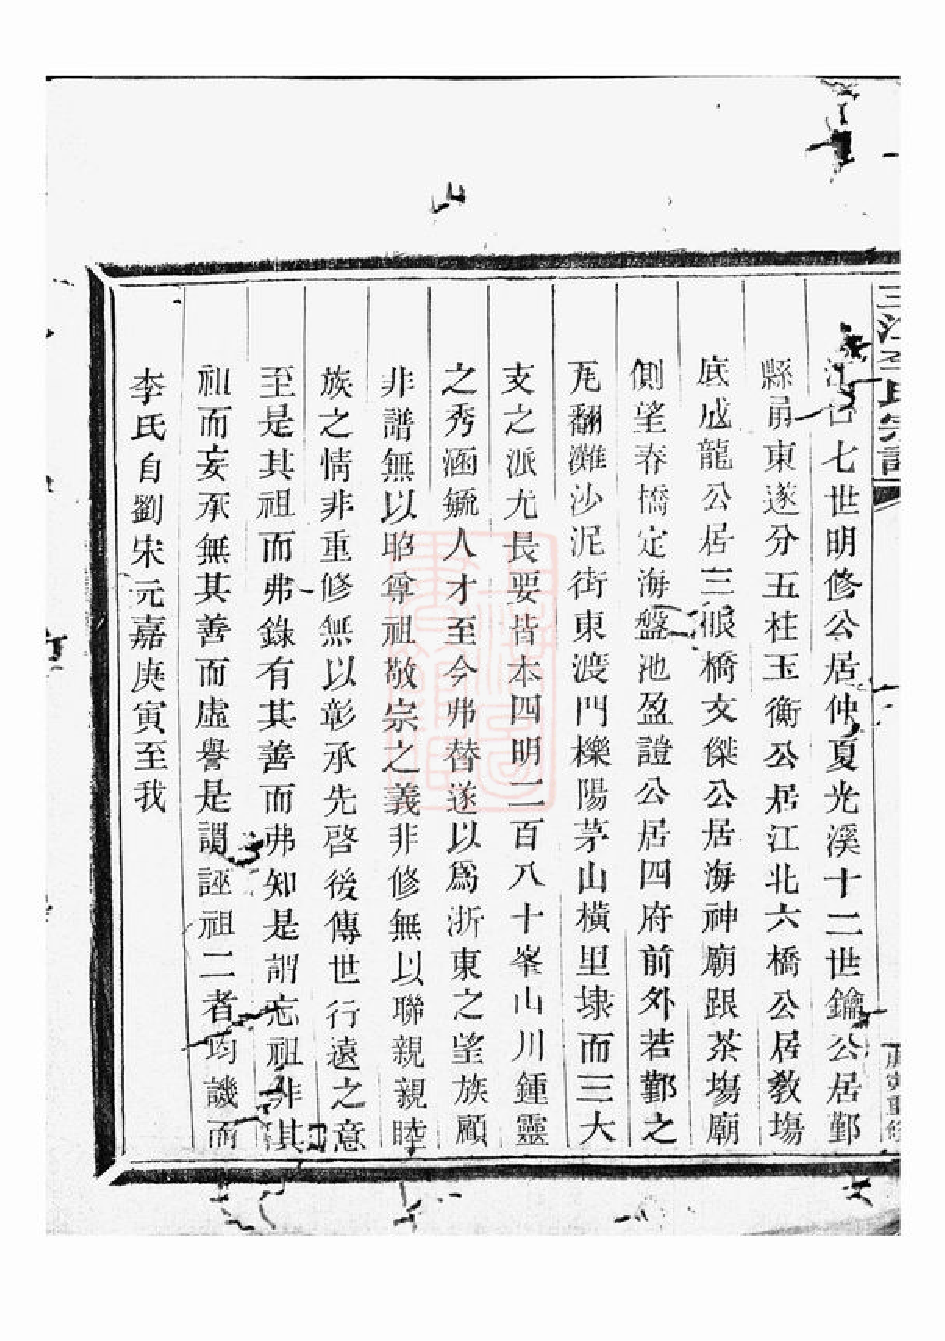 三江李氏宗譜
庚寅重修
江口七世明修公居仲夏光溪十二世鑰公居鄞
縣甬東遂分五桂玉衡公居江北六橋公居教塲
底成龍公居三眼橋文傑公居海神廟跟茶塲廟
側望春橋定海盤池盈證公居四府前外若鄞之
尾翻灘沙泥街東渡門櫟陽茅山橫里埭而三大
支之派尤長要皆本四明二百八十峯山川鍾靈
之秀涵毓人才至今弗替遂以爲浙東之望族顧
非譜無以昭尊祖敬宗之義非修無以聯親親睦
族之情非重修無以彰承先啓後傳世行遠之意
至是其祖而弗錄有其善而弗知是謂忘祖非其
祖而妄承無其善而虛譽是謂誣祖二者均譏而
李氏自劉宋元嘉庚寅至我